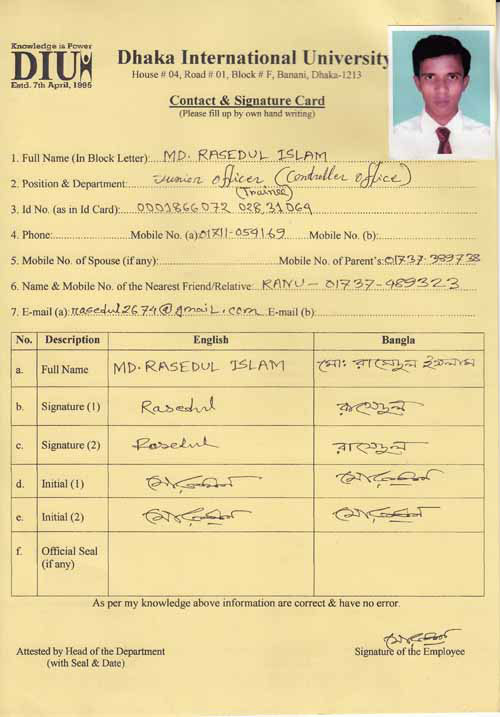 Knowledge is Power
DIU
Estd. 7th April, 1995
Dhaka International University
House # 04, Road # 01, Block # F, Banani, Dhaka-1213
Contact & Signature Card
(Please fill up by own hand writing)
1. Full Name (In Block Letter): MD. RASEDUL ISLAM
2. Position & Department: Junior officer (Controller office)
(Trainee)
3. Id No. (as in Id Card): 0001866072 028,31069
4. Phone: Mobile No. (a): 01711-059169 Mobile No. (b):
5. Mobile No. of Spouse (if any): Mobile No. of Parent's: 01737-389738
6. Name & Mobile No. of the Nearest Friend/Relative: RANU - 01737-489323
7. E-mail (a): rasedul2674@gmail.com E-mail (b):
No. Description English Bangla
a. Full Name MD. RASEDUL ISLAM মো: রাসেদুল ইসলাম
b. Signature (1) Rasedul রাসেদুল
c. Signature (2) Rasedul রাসেদুল
d. Initial (1)
e. Initial (2)
f. Official Seal
(if any)
As per my knowledge above information are correct & have no error.
Attested by Head of the Department
(with Seal & Date)
Signature of the Employee